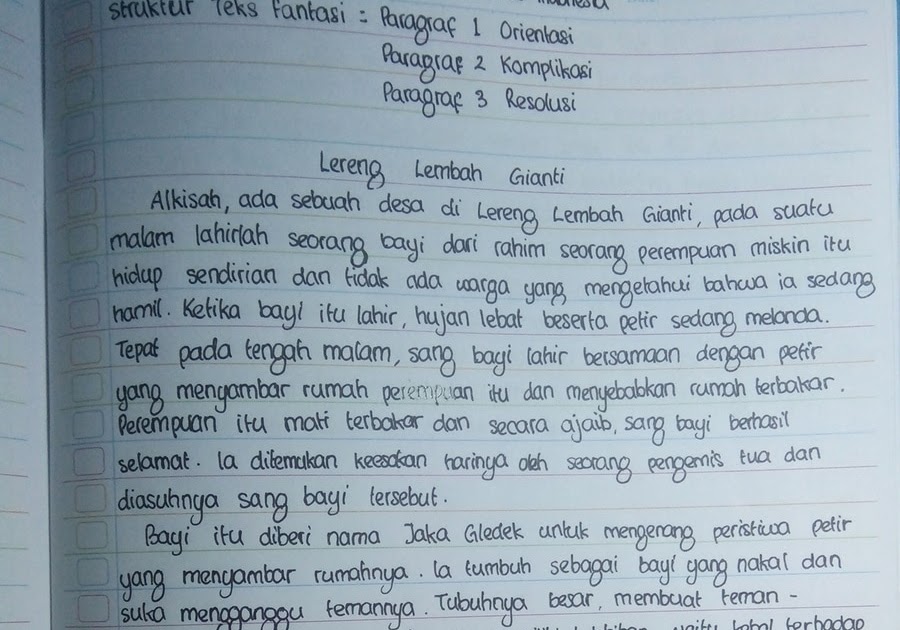 Indonesia
Struktur Teks Fantasi : Paragraf 1 Orientasi
Paragraf 2 Komplikasi
Paragraf 3 Resolusi
Lereng Lembah Gianti
Alkisah, ada sebuah desa di Lereng Lembah Gianti, pada suatu
malam lahirlah seorang bayi dari rahim seorang perempuan miskin itu
hidup sendirian dan tidak ada warga yang mengetahui bahwa ia sedang
hamil. Ketika bayi itu lahir, hujan lebat beserta petir sedang melanda.
Tepat pada tengah malam, sang bayi lahir bersamaan dengan petir
yang mengambar rumah perempuan itu dan menyebabkan rumah terbakar.
Perempuan itu mati terbakar dan secara ajaib, sang bayi berhasil
selamat. Ia ditemukan keesokan harinya oleh seorang pengemis tua dan
diasuhnya sang bayi tersebut.
Bayi itu diberi nama Jaka Gledek untuk mengerang peristiwa petir
yang mengambar rumahnya. Ia tumbuh sebagai bayi yang nakal dan
suka mengganggu temannya. Tubuhnya besar, membuat teman -
yaitu kebal terhadap